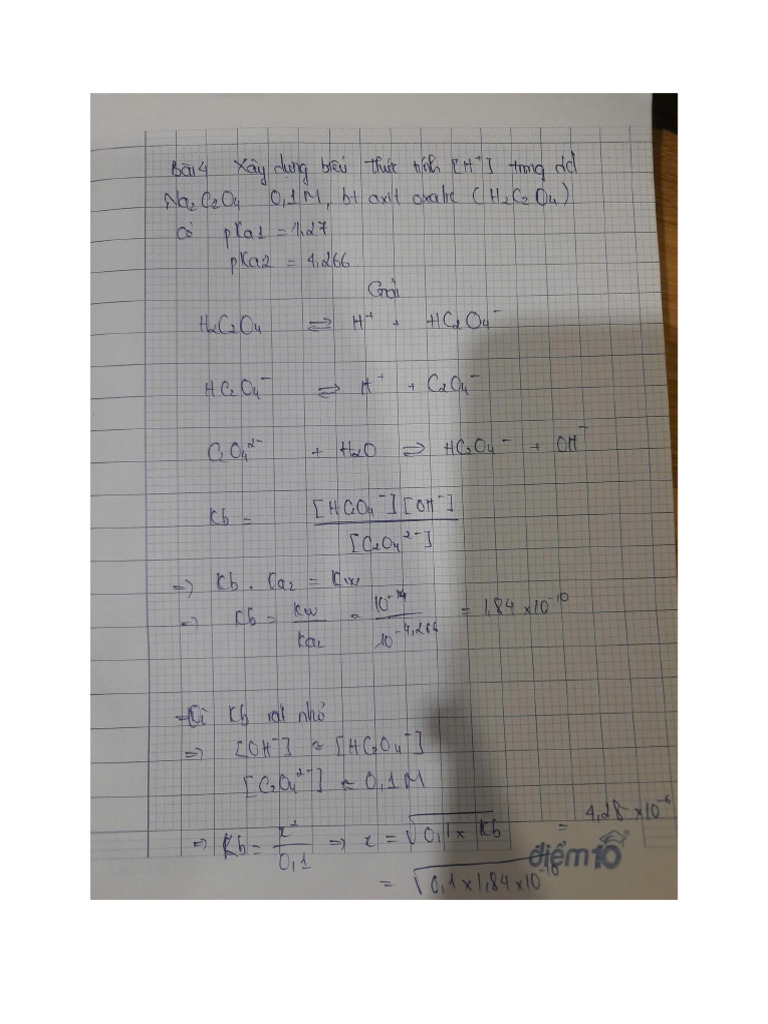 Bài 4 Xây dựng biểu thức tính [H⁺] trong dd
Na₂C₂O₄ 0,1M, bt axit oxalic (H₂C₂O₄)
Có pKa1 = 1,27
pKa2 = 4,266
Giải
H₂C₂O₄ ⇌ H⁺ + HC₂O₄⁻
HC₂O₄⁻ ⇌ H⁺ + C₂O₄⁻
C₂O₄²⁻ + H₂O ⇌ HC₂O₄⁻ + OH⁻
Kb = [HC₂O₄⁻][OH⁻] / [C₂O₄²⁻]
=> Kb . Ka₂ = Kw
=> Kb = Kw / Ka₂ = 10⁻¹⁴ / 10⁻⁴,²⁶⁶ = 1,84 × 10⁻¹⁰
Kb rất nhỏ
=> [OH⁻] ≈ [HC₂O₄⁻]
[C₂O₄²⁻] ≈ 0,1M
=> Kb = x² / 0,1 => x = √(0,1 × Kb) = 4,28 × 10⁻⁶
= √(0,1 × 1,84 × 10⁻¹⁰)
điểm10